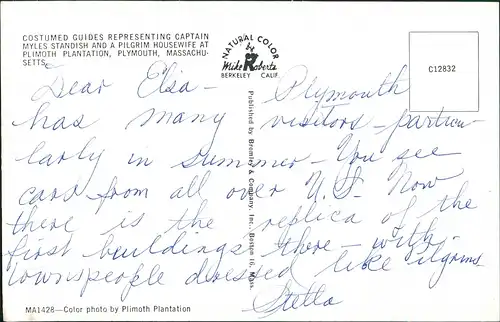 COSTUMED GUIDES REPRESENTING CAPTAIN
MYLES STANDISH AND A PILGRIM HOUSEWIFE AT
PLIMOTH PLANTATION, PLYMOUTH, MASSACHU-
SETTS.
NATURAL COLOR
Mike Roberts
BERKELEY CALIF.
C12832
Dear Elsa - Plymouth
has many visitors - particu-
larly in summer - You see
cars from all over U.S. Now
there is the replica of the
first buildings there - with
townspeople dressed like pilgrims
Stella
Published by Bromley & Company, Inc., Boston 16, Mass.
MA1428—Color photo by Plimoth Plantation